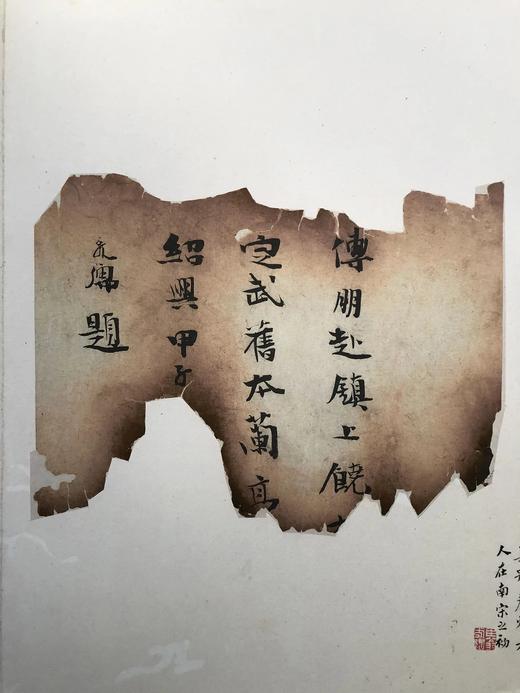 傅朋赴鎮上饒
定武舊本蘭亭
紹興甲子
題
人在南宋之初